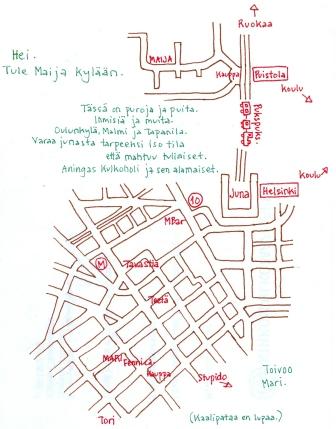 Ruokaa
Hei.
Tule Maija kylään.
MAIJA
Kauppa
Puistola
Koulu
Tässä on puroja ja puita.
Ihmisiä ja muita.
Oulunkylä, Malmi ja Tapanila.
Varaa junasta tarpeeksi iso tila
että mahtuu tulimaiset.
Aningas Kulkoholi ja sen alamaiset.
Puksputs.
Koulu
Juna
Helsinki
10
MBar
M
Tavastia
Teetä
MARI
Fennica
Kauppa
Stupido
Toivoo
Mari.
Tori
(Kaalipataa en lupaa.)